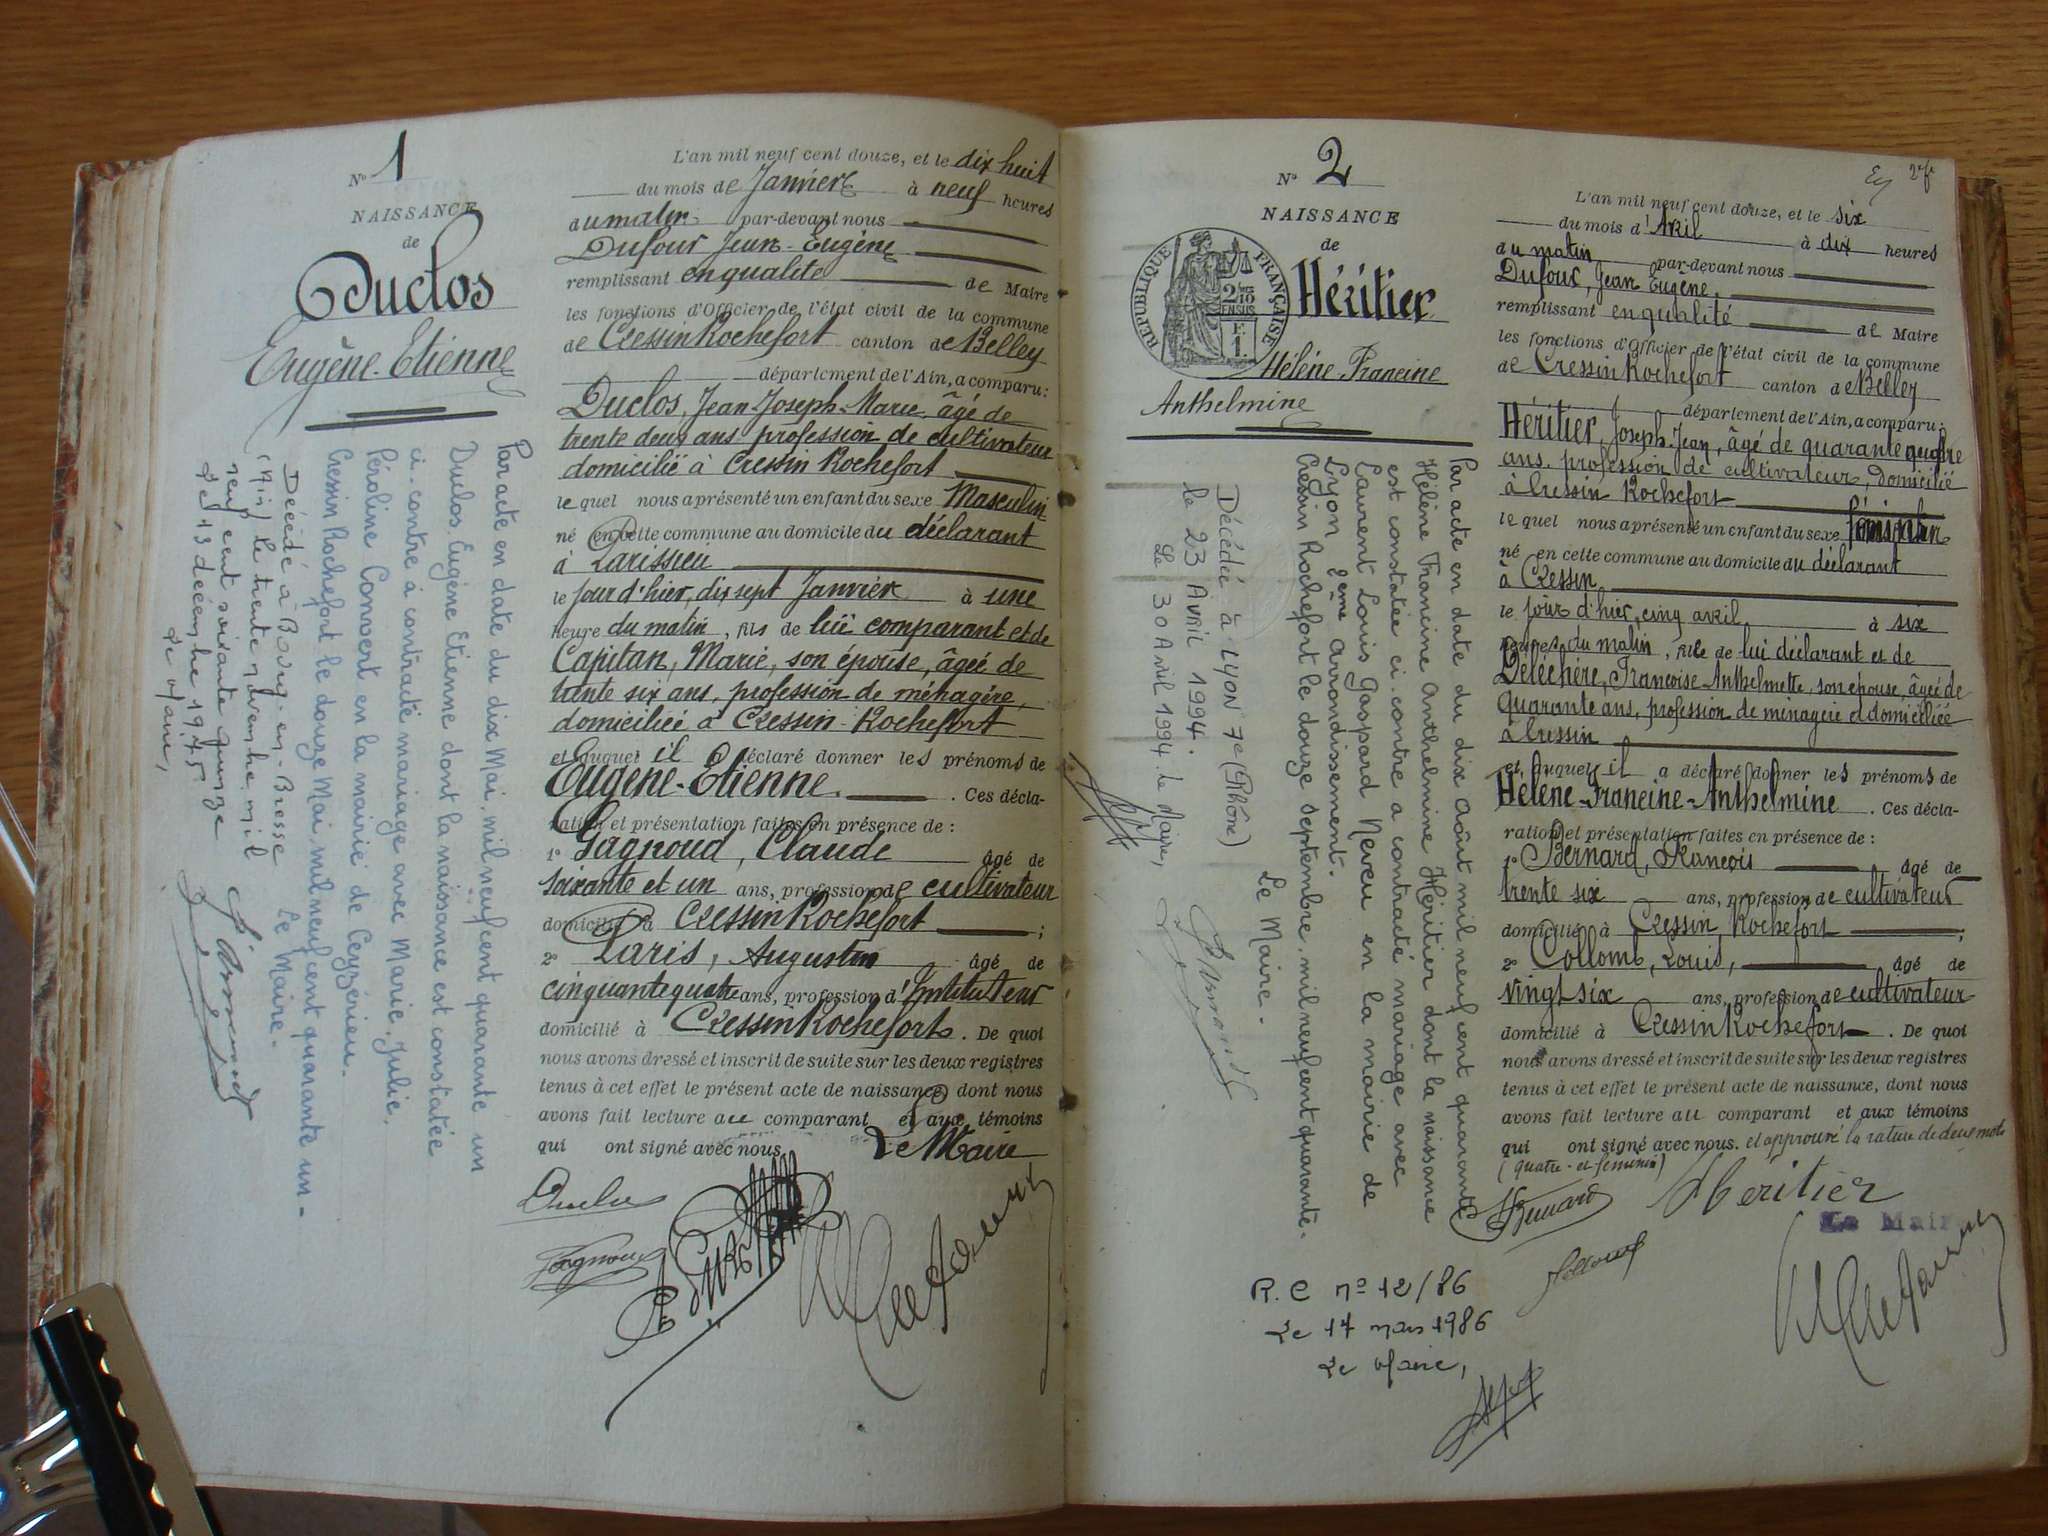 N° 1
NAISSANCE
de
Duclos
Eugène-Etienne
Par acte en date du dix Mai, mil neuf cent quarante un
Duclos Eugène Etienne dont la naissance est constatée
ci-contre à contracté mariage avec Marie, Julie,
Péroline Convert en la mairie de Ceyzérieu.
Cressin Rochefort le douze Mai mil neuf cent quarante un-
Le Maire.-
Décédé à Bourg-en-Bresse
(Ain) le trente novembre mil
neuf cent soixante quinze
Le 13 décembre 1975
Le Maire,
L'an mil neuf cent douze, et le dix huit
du mois de Janvier à neuf heures
du matin par-devant nous
Dufour Jean-Eugène
remplissant en qualité de Maire
les fonctions d'Officier de l'état civil de la commune
de Cressin Rochefort canton de Belley
département de l'Ain, a comparu:
Duclos, Jean-Joseph-Marie, âgé de
trente deux ans profession de cultivateur
domicilié à Cressin Rochefort
le quel nous a présenté un enfant du sexe Masculin
né en cette commune au domicile du déclarant
à
le jour d'hier, dix sept Janvier à une
heure du matin, fils de lui comparant et de
Capitan, Marie, son épouse, âgée de
trente six ans, profession de ménagère,
domiciliée à Cressin-Rochefort
et auquel il a déclaré donner les prénoms de
Eugène-Étienne. Ces décla-
ration et présentation faites en présence de :
1° Gagnoud, Claude âgé de
soixante et un ans, profession de cultivateur
domicilié à Cressin Rochefort ;
2° Paris, Augustin âgé de
cinquante quatre ans, profession d'Instituteur
domicilié à Cressin Rochefort. De quoi
nous avons dressé et inscrit de suite sur les deux registres
tenus à cet effet le présent acte de naissance, dont nous
avons fait lecture au comparant et aux témoins
qui ont signé avec nous.
Le Maire
N° 2
NAISSANCE
de
RÉPUBLIQUE FRANÇAISE
2 10
EN SUS
Héritier
Hélène-Francine
Anthelmine
Par acte en date du dix Août mil neuf cent quarante
Hélène Francine Anthelmine Héritier dont la naissance
est constatée ci-contre a contracté mariage avec
Laurent Louis Gaspard Neveu en la mairie de
Lyon 2ème Arrondissement.-
Cressin Rochefort le douze Septembre, mil neuf cent quarante.-
Le Maire.-
Décédée à LYON 7e (Rhône)
le 23 Avril 1994.
Le 30 Avril 1994. le Maire,
R.C n° 12/86
Le 17 mars 1986
Le Maire,
L'an mil neuf cent douze, et le six
du mois d'Avril à dix heures
du matin par-devant nous
Dufour, Jean Eugène,
remplissant en qualité de Maire
les fonctions d'Officier de l'état civil de la commune
de Cressin Rochefort canton de Belley
département de l'Ain, a comparu:
Héritier, Joseph Jean, âgé de quarante quatre
ans, profession de cultivateur, domicilié
à Cressin Rochefort
le quel nous a présenté un enfant du sexe féminin
né en cette commune au domicile du déclarant
à Cressin
le jour d'hier, cinq avril à six
heures du matin, fille de lui déclarant et de
Deléchère, Francoise-Anthelmette, son épouse, âgée de
quarante ans, profession de ménagère et domiciliée
à Cressin
et auquel il a déclaré donner les prénoms de
Hélène-Francine-Anthelmine. Ces décla-
ration et présentation faites en présence de :
1° Bernard, François âgé de
trente six ans, profession de cultivateur
domicilié à Cressin Rochefort ;
2° Collomb, Louis, âgé de
vingt six ans, profession de cultivateur
domicilié à Cressin Rochefort. De quoi
nous avons dressé et inscrit de suite sur les deux registres
tenus à cet effet le présent acte de naissance, dont nous
avons fait lecture au comparant et aux témoins
qui ont signé avec nous. et approuvé la rature de deux mots
(quatre-et-féminin)
Héritier
Le Maire